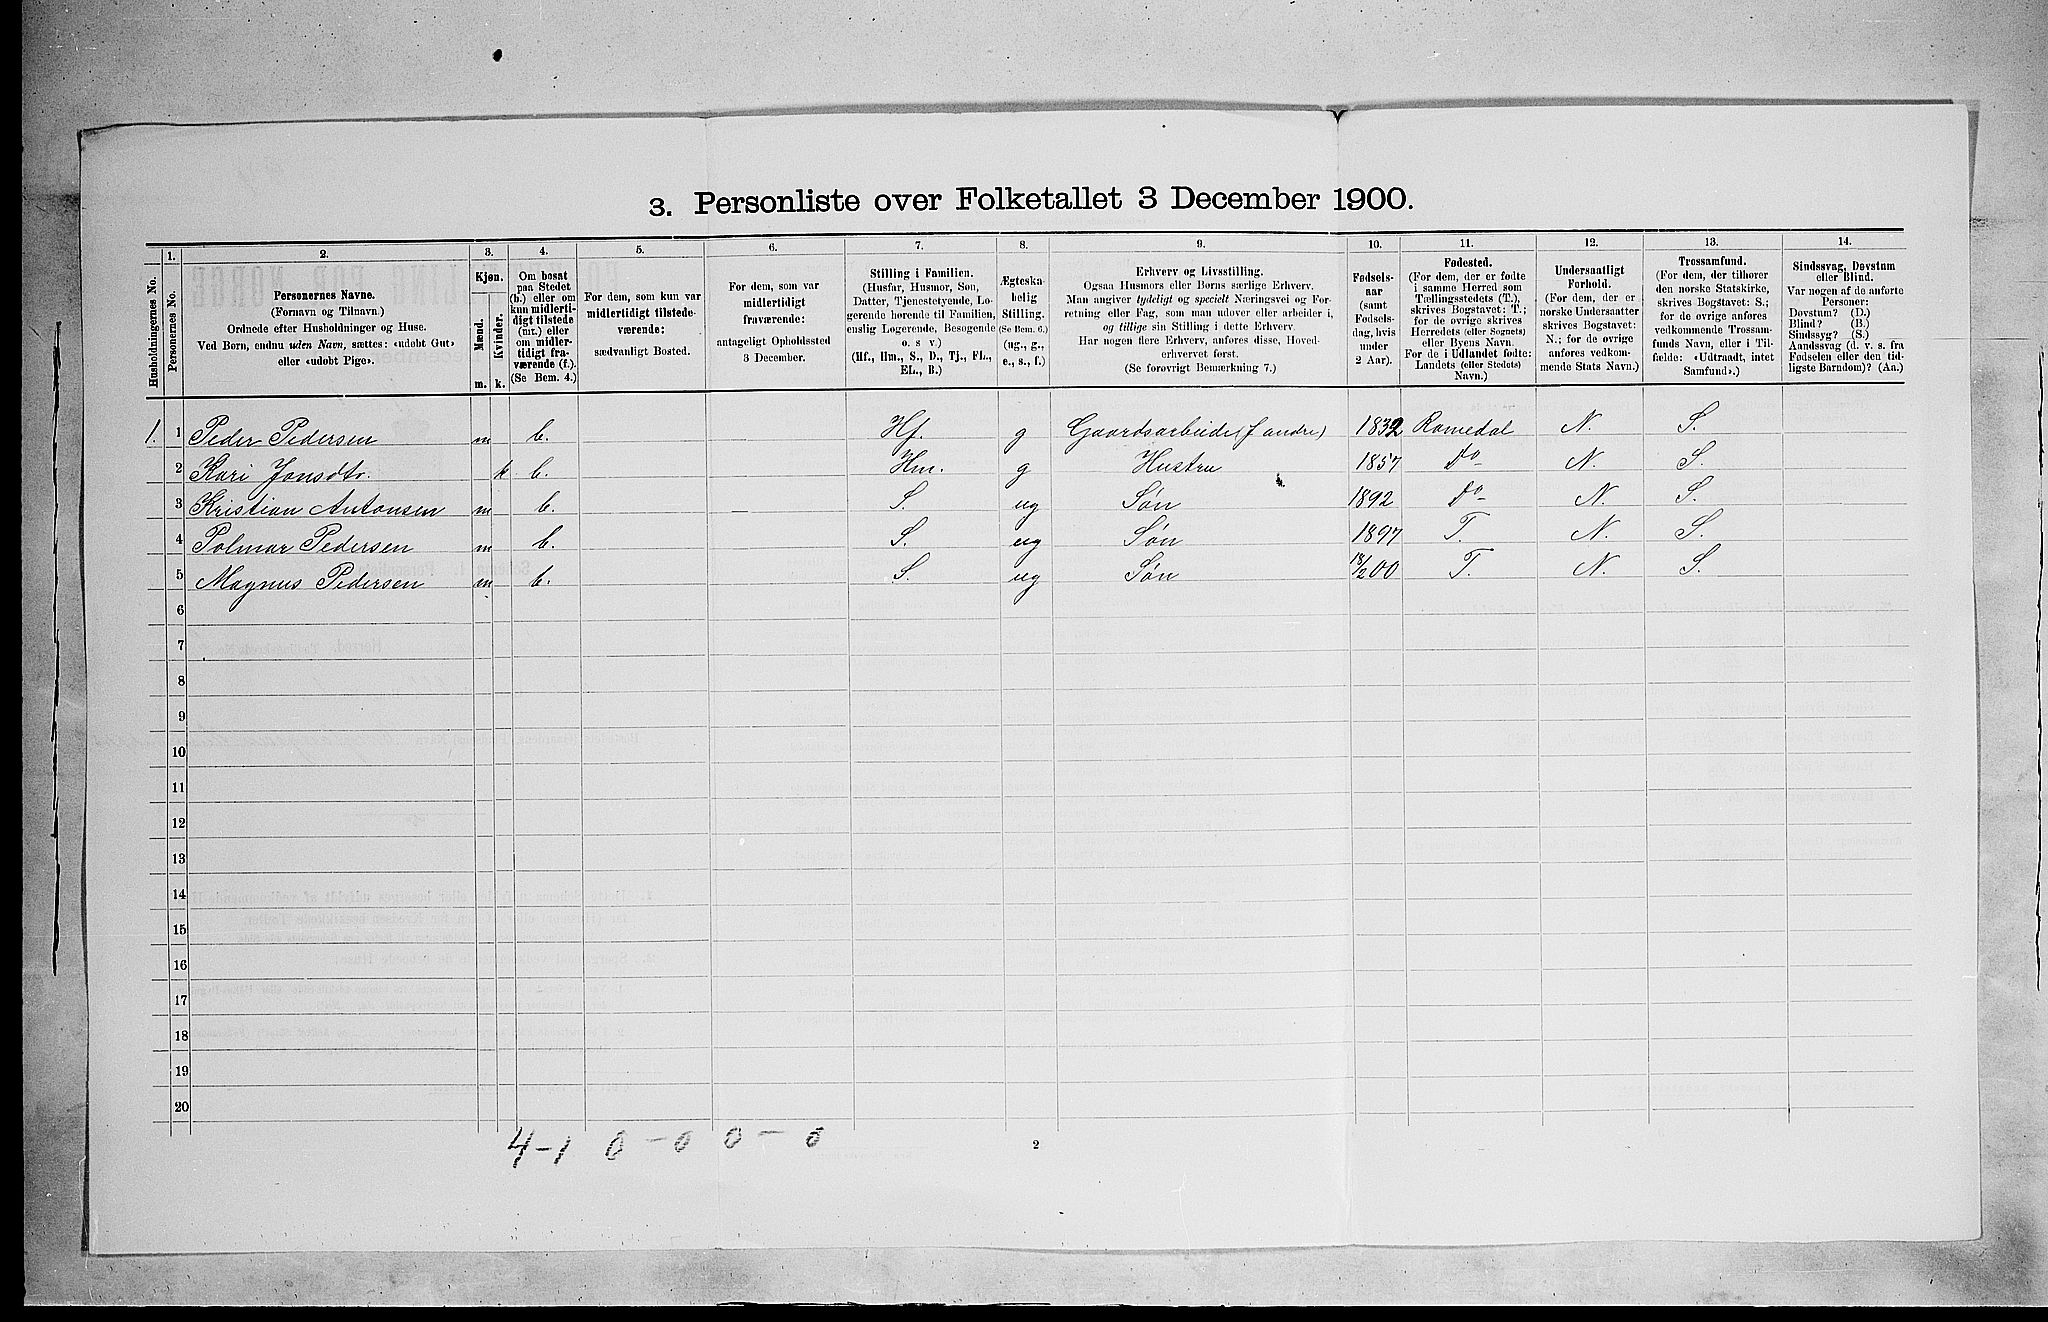 3. Personliste over Folketallet 3 December 1900.
1. 2. 3. 4. 5. 6. 7. 8. 9. 10. 11. 12. 13. 14.
Husholdningernes No.
Personernes No.
Personernes Navne.
(Fornavn og Tilnavn.)
Ordnede efter Husholdninger og Huse.
Ved Børn, endnu uden Navn, sættes: «udøbt Gut»
eller «udøbt Pige».
Kjøn.
Mænd.
Kvinder.
m. k.
Om bosat
paa Stedet
(b.) eller om
kun midlerti-
digt tilstede
(mt.) eller
om midler-
tidigt fra-
værende (f.).
(Se Bem. 4.)
For dem, som kun var
midlertidigt tilstede-
værende:
sædvanligt Bosted.
For dem, som var
midlertidigt
fraværende:
antageligt Opholdssted
3 December.
Stilling i Familien.
(Husfar, Husmor, Søn,
Datter, Tjenestetyende, Lo-
gerende hørende til Familien,
enslig Logerende, Besøgende
o. s v.)
(Hf., Hm., S., D., Tj., FL.,
EL., B.)
Ægteska-
belig
Stilling.
(Se Bem. 6.)
(ug., g.,
e., s., f.)
Erhverv og Livsstilling.
Ogsaa Husmors eller Børns særlige Erhverv.
Man angiver tydeligt og specielt Næringsvei og For-
retning eller Fag, som man udøver eller arbeider i,
og tillige sin Stilling i dette Erhverv.
Har nogen flere Erhverv, anføres disse, Hoved-
erhvervet først.
(Se forøvrigt Bemærkning 7.)
Fødsels-
aar
(samt
Fødsels-
dag, hvis
under
2 Aar).
Fødested.
(For dem, der er fødte
i samme Herred som
Tællingsstedets (T.),
skrives Bogstavet: T.;
for de øvrige skrives
Herredets (eller Sognets)
eller Byens Navn.
For de i Udlandet fødte:
Landets (eller Stedets)
Navn.)
Undersaatligt
Forhold.
(For dem, der er
norske Undersaatter
skrives Bogstavet:
N.; for de øvrige
anføres vedkom-
mende Stats Navn.)
Trossamfund.
(For dem, der tilhører
den norske Statskirke,
skrives Bogstavet: S.;
for de øvrige anføres
vedkommende Trossam-
funds Navn, eller i Til-
fælde: «Udtraadt, intet
Samfund».)
Sindssvag, Døvstum
eller Blind.
Var nogen af de anførte
Personer:
Døvstum? (D.)
Blind? (B.)
Sindssyg? (S.)
Aandssvag (d. v. s. fra
Fødselen eller den tid-
ligste Barndom)? (Aa.)
1. 1 Peder Pedersen m b. Hf. g Gaardsarbeide (f andre) 1832 Romedal N. S.
2 Kari Jonsdtr. k b. Hm. g Hustru 1857 Do N. S.
3 Kristian Antonsen m b. – S. ug Søn 1892 Do N. S.
4 Polmar Pedersen m b. S. ug Søn 1897 T. N. S.
5 Magnus Pedersen m b. S. ug Søn 18/2 00 T. N. S.
6
7
8
9
10
11
12
13
14
15
16
17
18
19
20
4-1 0-0 0-0
2